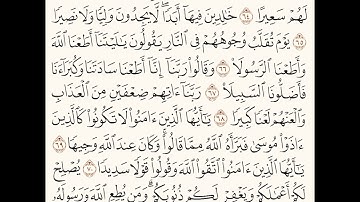 لَهُمْ سَعِيرًا ٦٤ خَٰلِدِينَ فِيهَآ أَبَدًا ۖ لَّا يَجِدُونَ وَلِيًّا وَلَا نَصِيرًا
٦٥ يَوْمَ تُقَلَّبُ وُجُوهُهُمْ فِي ٱلنَّارِ يَقُولُونَ يَٰلَيْتَنَآ أَطَعْنَا ٱللَّهَ
وَأَطَعْنَا ٱلرَّسُولَا۠ ٦٦ وَقَالُوا۟ رَبَّنَآ إِنَّآ أَطَعْنَا سَادَتَنَا وَكُبَرَآءَنَا
فَأَضَلُّونَا ٱلسَّبِيلَا۠ ٦٧ رَبَّنَآ ءَاتِهِمْ ضِعْفَيْنِ مِنَ ٱلْعَذَابِ
وَٱلْعَنْهُمْ لَعْنًا كَبِيرًا ٦٨ يَٰٓأَيُّهَا ٱلَّذِينَ ءَامَنُوا۟ لَا تَكُونُوا۟ كَٱلَّذِينَ
ءَاذَوْا۟ مُوسَىٰ فَبَرَّأَهُ ٱللَّهُ مِمَّا قَالُوا۟ ۚ وَكَانَ عِندَ ٱللَّهِ وَجِيهًا
٦٩ يَٰٓأَيُّهَا ٱلَّذِينَ ءَامَنُوا۟ ٱتَّقُوا۟ ٱللَّهَ وَقُولُوا۟ قَوْلًا سَدِيدًا ٧٠ يُصْلِحْ
لَكُمْ أَعْمَٰلَكُمْ وَيَغْفِرْ لَكُمْ ذُنُوبَكُمْ ۗ وَمَن يُطِعِ ٱللَّهَ وَرَسُولَهُۥ